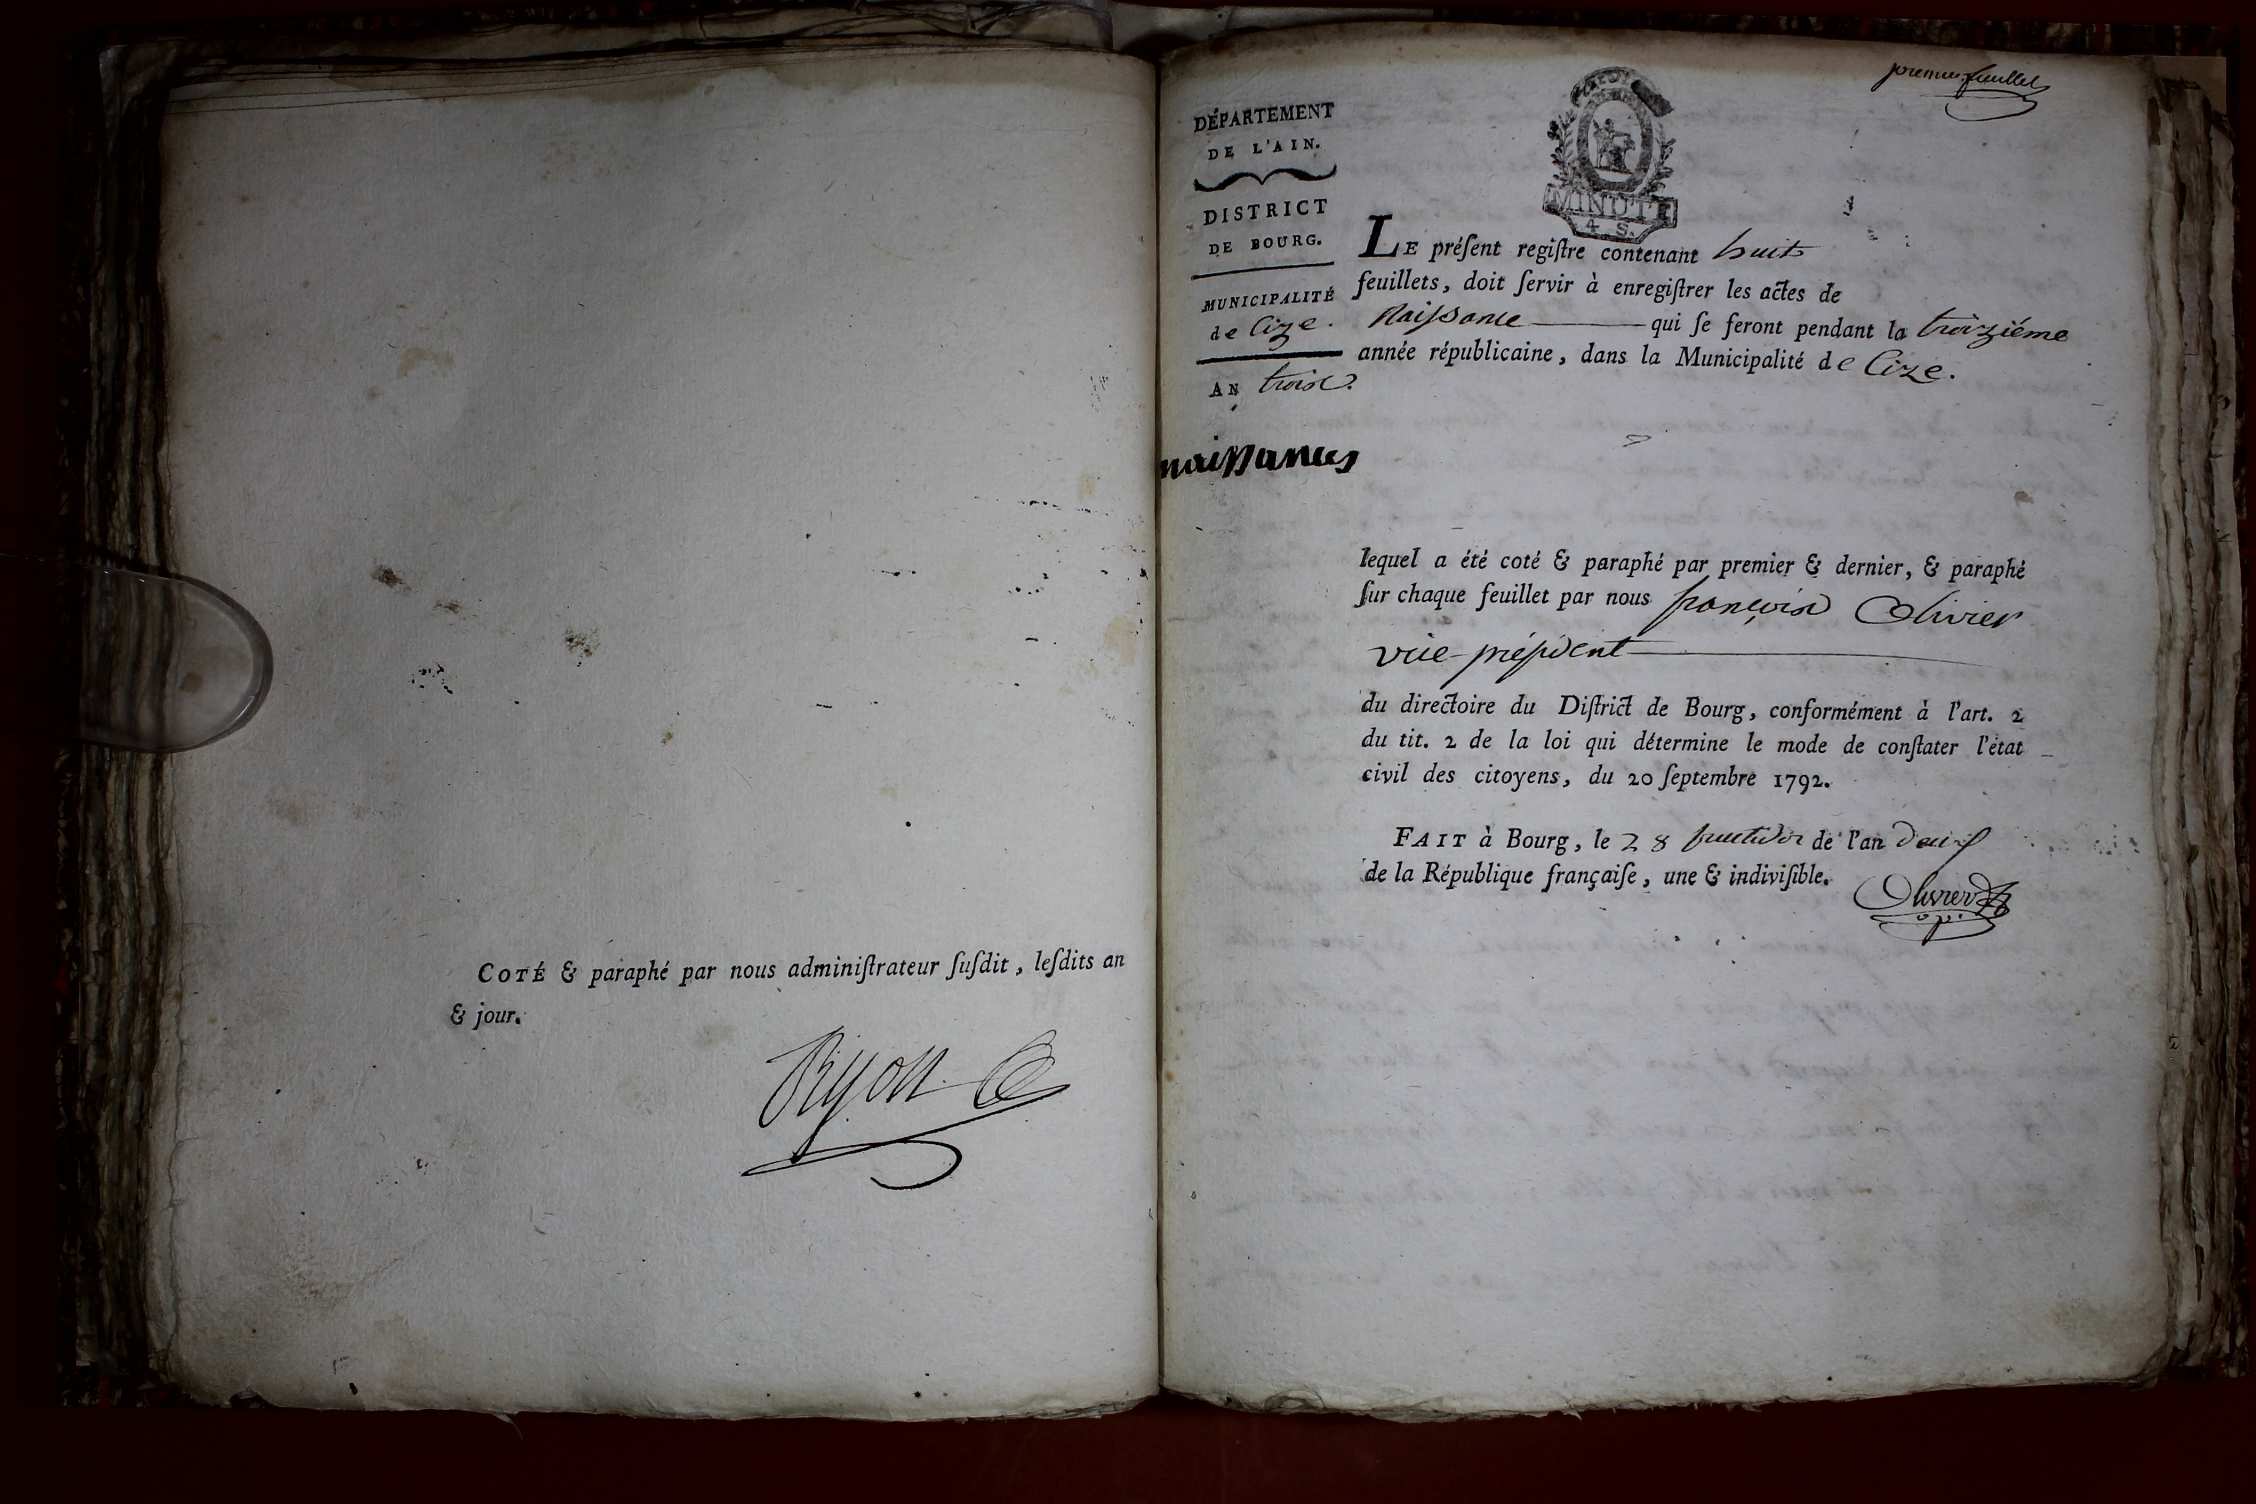 COTÉ & paraphé par nous adminiſtrateur ſuſdit, leſdits an
& jour.
premier feuillet
DÉPARTEMENT
DE L'AIN.
DISTRICT
DE BOURG.
MUNICIPALITÉ
de Cize.
AN trois.
naissances
MINUTE
4. S.
LE préſent regiſtre contenant huit
feuillets, doit ſervir à enregiſtrer les actes de
Naissance qui ſe feront pendant la troiziéme
année républicaine, dans la Municipalité de Cize.
lequel a été coté & paraphé par premier & dernier, & paraphé
ſur chaque feuillet par nous françois Olivier
vice-président
du directoire du Diſtrict de Bourg, conformément à l'art. 2
du tit. 2 de la loi qui détermine le mode de conſtater l'état
civil des citoyens, du 20 ſeptembre 1792.
FAIT à Bourg, le 28 fructidor de l'an deux
de la République françaiſe, une & indiviſible.
Olivier